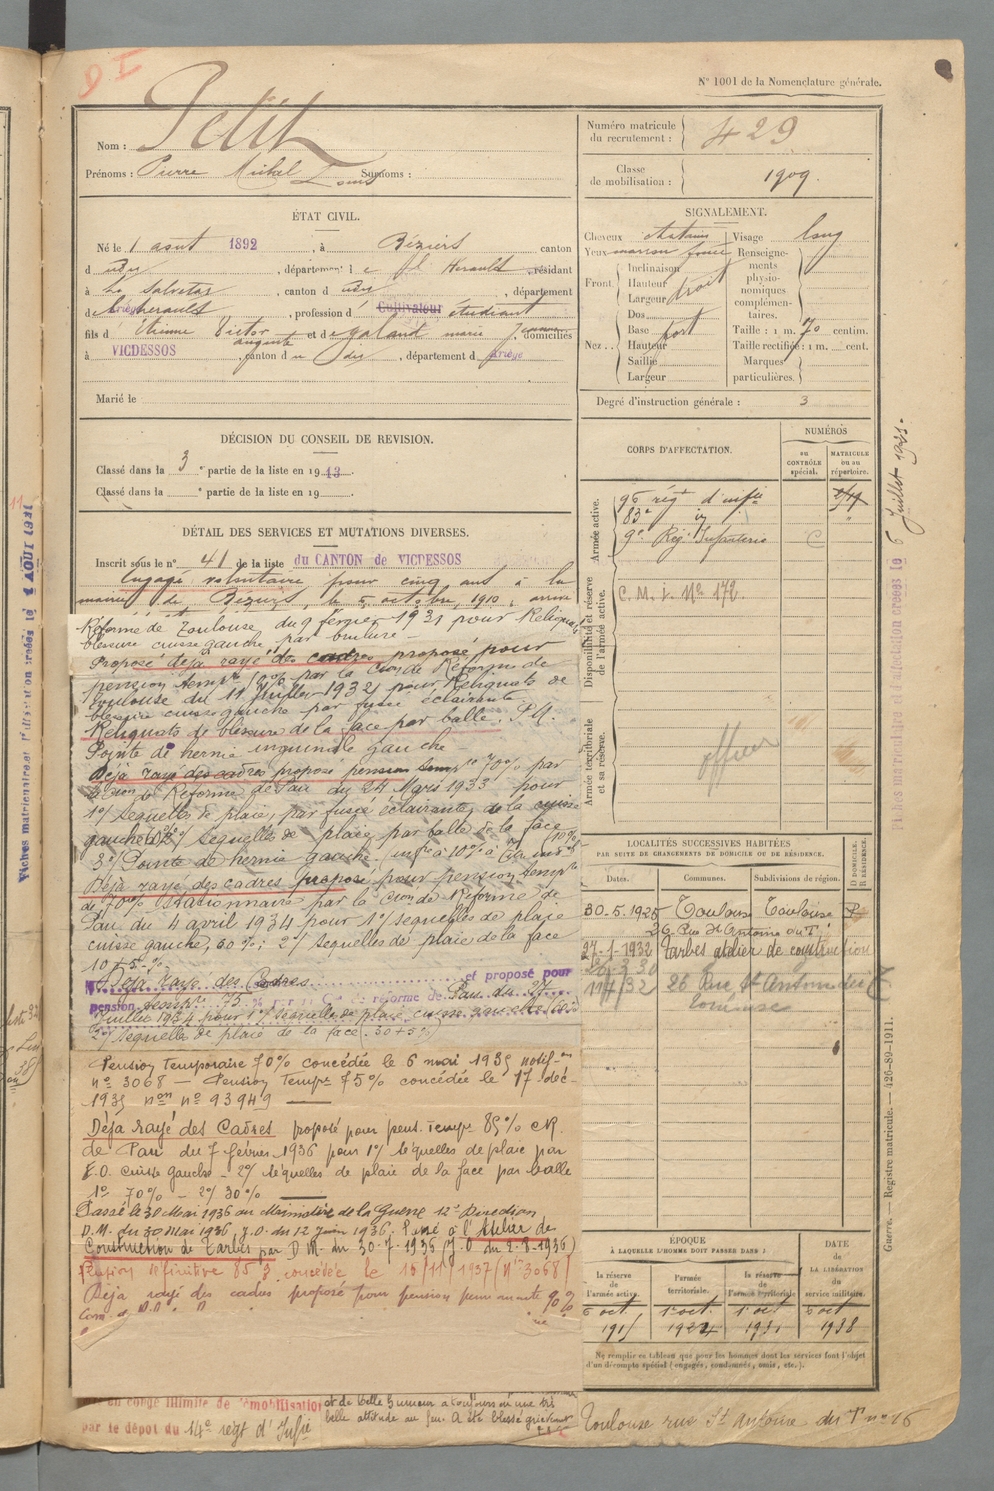 N° 1001 de la Nomenclature générale.
Nom : Petit
Prénoms : Pierre Michel Louis Surnoms :
Numéro matricule du recrutement : 429
Classe de mobilisation : 1909.
ÉTAT CIVIL.
Né le 1 août 1892, à Béziers canton
d udy, département de l'Hérault, résidant
à La Salvetat, canton d udy, département
d hérault, profession d Cultivateur étudiant
fils d Etienne Victor auguste et de galand marie Jeanne, domiciliés
à VICDESSOS, canton du dy, département d Ariège
Marié le
SIGNALEMENT.
Cheveux chatain
Yeux marron foncé
Front Inclinaison
Hauteur
Largeur droit
Nez Dos
Base fort
Hauteur
Saillie
Largeur
Visage long
Renseignements physionomiques complémentaires.
Taille : 1 m. 70 centim.
Taille rectifiée : 1 m. cent.
Marques particulières.
Degré d'instruction générale : 3
DÉCISION DU CONSEIL DE REVISION.
Classé dans la 3e partie de la liste en 1913
Classé dans la e partie de la liste en 19
DÉTAIL DES SERVICES ET MUTATIONS DIVERSES.
Inscrit sous le n° 41 de la liste du CANTON de VICDESSOS
Engagé volontaire pour cinq ans à la
mairie de Béziers, le 5 octobre 1910, arrivé
Réforme de Toulouse du 9 février 1931 pour Reliquats
blessure cuisse gauche par brulure -
Proposé déjà rayé des cadres proposé pour
pension tempre 10% par la Cion de Réforme de
Toulouse du 11 Juillet 1932 pour Reliquats de
blessure cuisse gauche par fusée éclairante
Reliquats de blessure de la face par balle. P.A.
Pointe de hernie inguinale gauche -
Déjà rayé des cadres proposé pension tempre 70% par
la Cion de Réforme de Pau du 24 Mars 1933 pour
1°/ Sequelles de plaie, par fusée éclairante, de la cuisse
gauche 2°/ Sequelles de plaie par balle de la face
3°/ Pointe de hernie gauche infre à 10%
Déjà rayé des cadres proposé pour pension tempre
de 70% Stationnaire par la Cion de Réforme de
Pau du 4 avril 1934 pour 1°/ sequelles de plaie
cuisse gauche, 60%; 2°/ Sequelles de plaie de la face
10 + 5 %
Déjà Rayé des Cadres et proposé pour
pension tempre 75 % par la Con de réforme de Pau du 27
Juillet 1934 pour 1° sequelle de plaie cuisse gauche
2°/ sequelles de plaie de la face (30+5%)
Pension Temporaire 70% concédée le 6 mai 1935 notif-on
n° 3068 — Pension Tempre 75% concédée le 17 déc-
1935 non n° 93949
Déja rayé des Cadres proposé pour pens. Tempre 85% CR.
de Pau du 7 février 1936 pour 1°/ séquelles de plaie par
F.O. cuisse gauche - 2°/ séquelles de plaie de la face par balle
1° 70% - 2°/ 30%
Passé le 30 Mai 1936 au Ministère de la Guerre 12e Direction
D.M. du 30 Mai 1936 J.O. du 12 Juin 1936. Passé à l'Atelier de
Construction de Tarbes par D.M. du 30-7-1936 (J.O. du 2-8-1936)
Pension définitive 85% concédée le 15/11/1937 (N° 3068)
Déja rayé des cadres proposé pour pension permanente 90%
en congé illimité de démobilisation
par le dépôt du 14e régt d'Infie
et de belle humeur a toujours eu une très
belle attitude au feu. A été blessé grièvement
CORPS D'AFFECTATION.
NUMÉROS
au CONTRÔLE spécial.
MATRICULE ou au répertoire.
Armée active.
96 régt d'infie
83e iy
9e Rég. Infanterie C
Disponibilité et réserve de l'armée active.
C. M. I. N° 172.
Armée territoriale et sa réserve.
officier
LOCALITÉS SUCCESSIVES HABITÉES
PAR SUITE DE CHANGEMENTS DE DOMICILE OU DE RÉSIDENCE.
Dates. Communes. Subdivisions de région. D DOMICILE. R RÉSIDENCE.
30-5.1925 Toulouse Toulouse R
26 Rue St Antoine du T
27-1-1932 Tarbes atelier de construction
11/4/32 26 Rue St Antoine du T
Toulouse
ÉPOQUE
À LAQUELLE L'HOMME DOIT PASSER DANS :
la réserve de l'armée active.
l'armée territoriale.
la réserve de l'armée territoriale.
DATE de LA LIBÉRATION du service militaire.
5 oct. 1915
1er oct. 1924
1er oct 1931
5 oct 1938
Ne remplir ce tableau que pour les hommes dont les services font l'objet
d'un décompte spécial (engagés, condamnés, omis, etc.).
Toulouse rue St Antoine du T n° 16
Guerre. — Registre matricule. — 426-89-1911.
Fiches matriculaire et d'affectation créées le 6 Juillet 1921.
Fiches matriculaire et d'affectation créées le 1 AOUT 1931